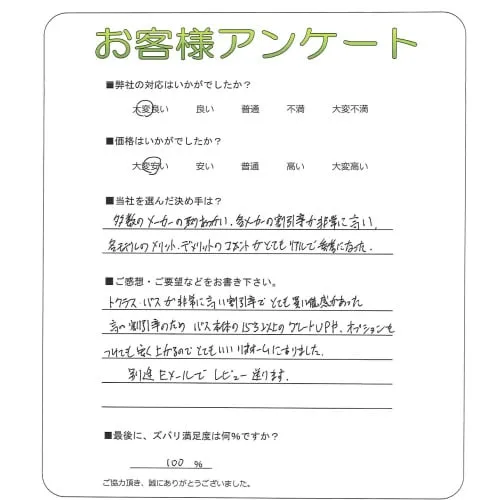 お客様アンケート
■弊社の対応はいかがでしたか？
大変良い 良い 普通 不満 大変不満
■価格はいかがでしたか？
大変安い 安い 普通 高い 大変高い
■当社を選んだ決め手は？
多数のメーカーの取りあつかい、各メーカーの割引率が非常に高い、
各モデルのメリット、デメリットのコメントがとてもリアルで参考になった。
■ご感想・ご要望などをお書き下さい。
トクラス・バスが非常に高い割引率でとても買い得感があった
高い割引率のため バス本体の グレードUPや、オプションを
つけても安く上がるのでとてもいいリフォームになりました。
別途Eメールでレビュー送ります。
■最後に、ズバリ満足度は何％ですか？
100 ％
ご協力頂き、誠にありがとうございました。